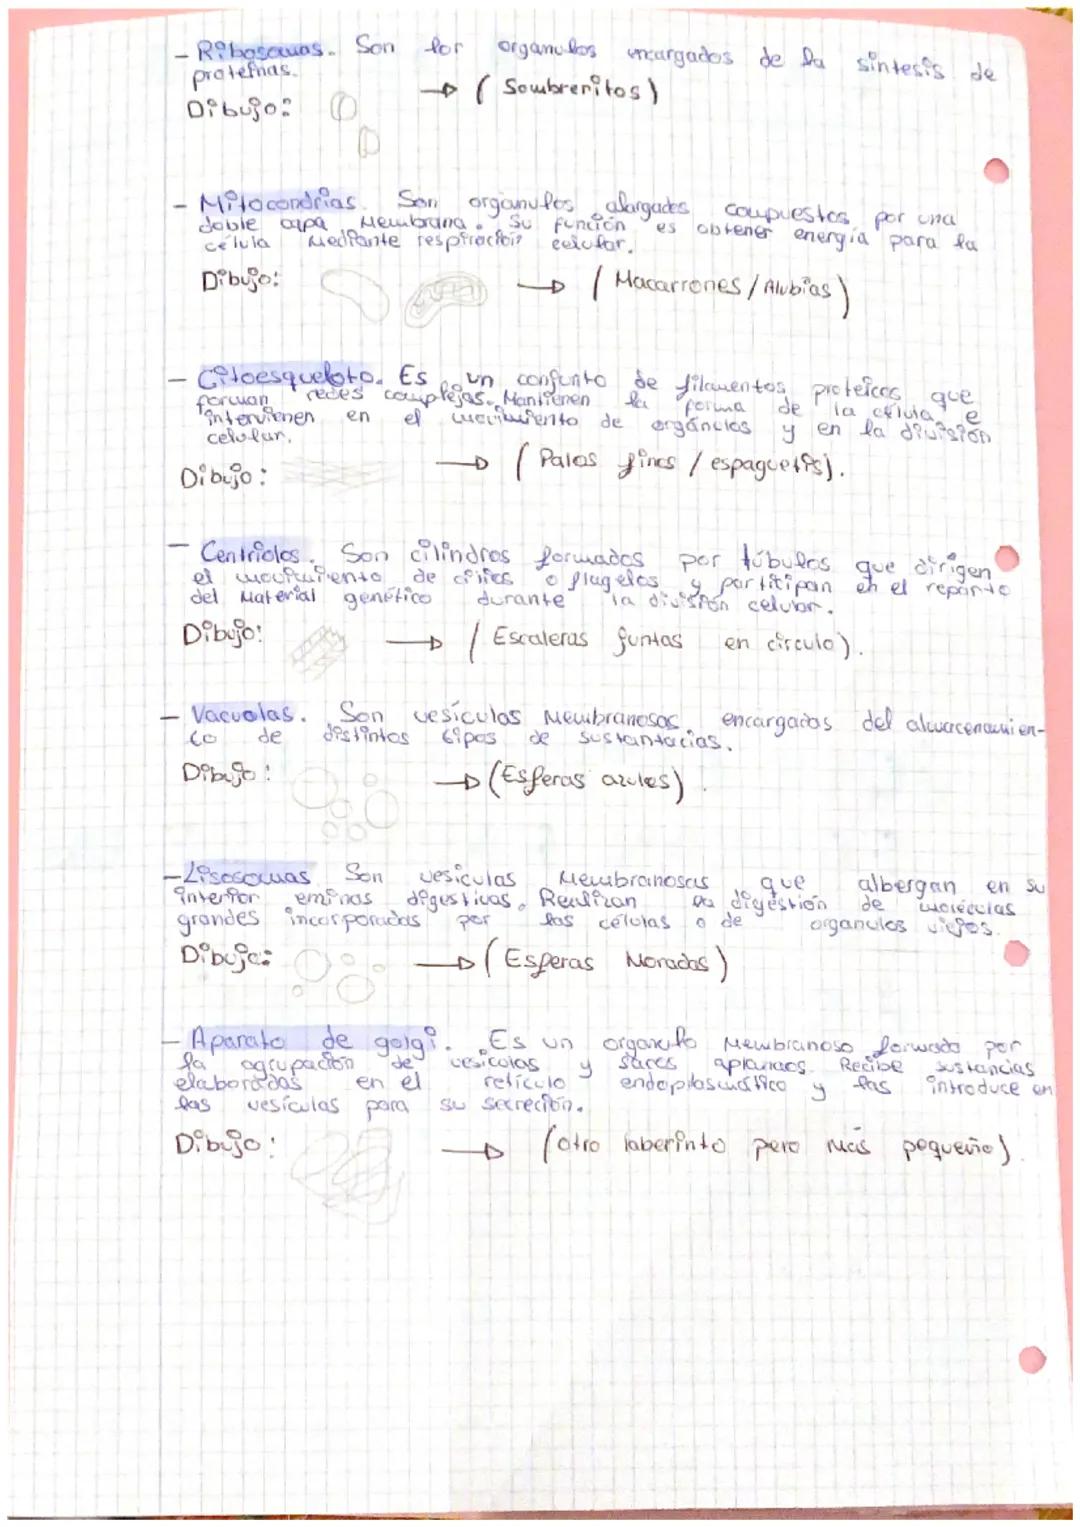 - Ribosomas. Son lor organulos encargados de la sintesis de
proteínas.
Dibujo: → (Sombreritos)
- Mitocondrias. Son organulos alargados compuestos por una
doble capa Membrana. Su función es obtener energía para la
célula Mediante respiración celular.
Dibujo: → (Macarrones/Alubias)
- Citoesqueloto. Es un conjunto de filamentos proteicos que
forman redes complejas. Mantienen la forma de la célula e
intervienen en el movimiento de orgánclos y en la división
celular.
Dibujo: → (Palos finos / espaguetis).
- Centriolos. Son cilindros formados por túbulos que dirigen
el movimiento de cilios o flagelos y partitipan en el reparto
del Material genético durante la división celular.
Dibujo: → (Escaleras juntas en circulo).
- Vacuolas. Son vesículas Membranosas encargadas del almacenamien-
to de distintos tipos de sustantacias.
Dibujo: → (Esferas azules).
- Lisosomas Son vesiculas Membranosas que albergan en su
interior digestivas. Realizan la digestión de moléculas
grandes incorporadas por las células o de organulos viejos.
Dibujo: → (Esferas Moradas)
- Aparato de golgi. Es un organulo Membranoso formado por
la agrupación de vesicolas y sares aplanaos. Recibe sustancias
elaboradas en el retículo endoplasmático y las introduce en
las vesículas para su secreción.
Dibujo: → (otro laberinto pero más pequeño).